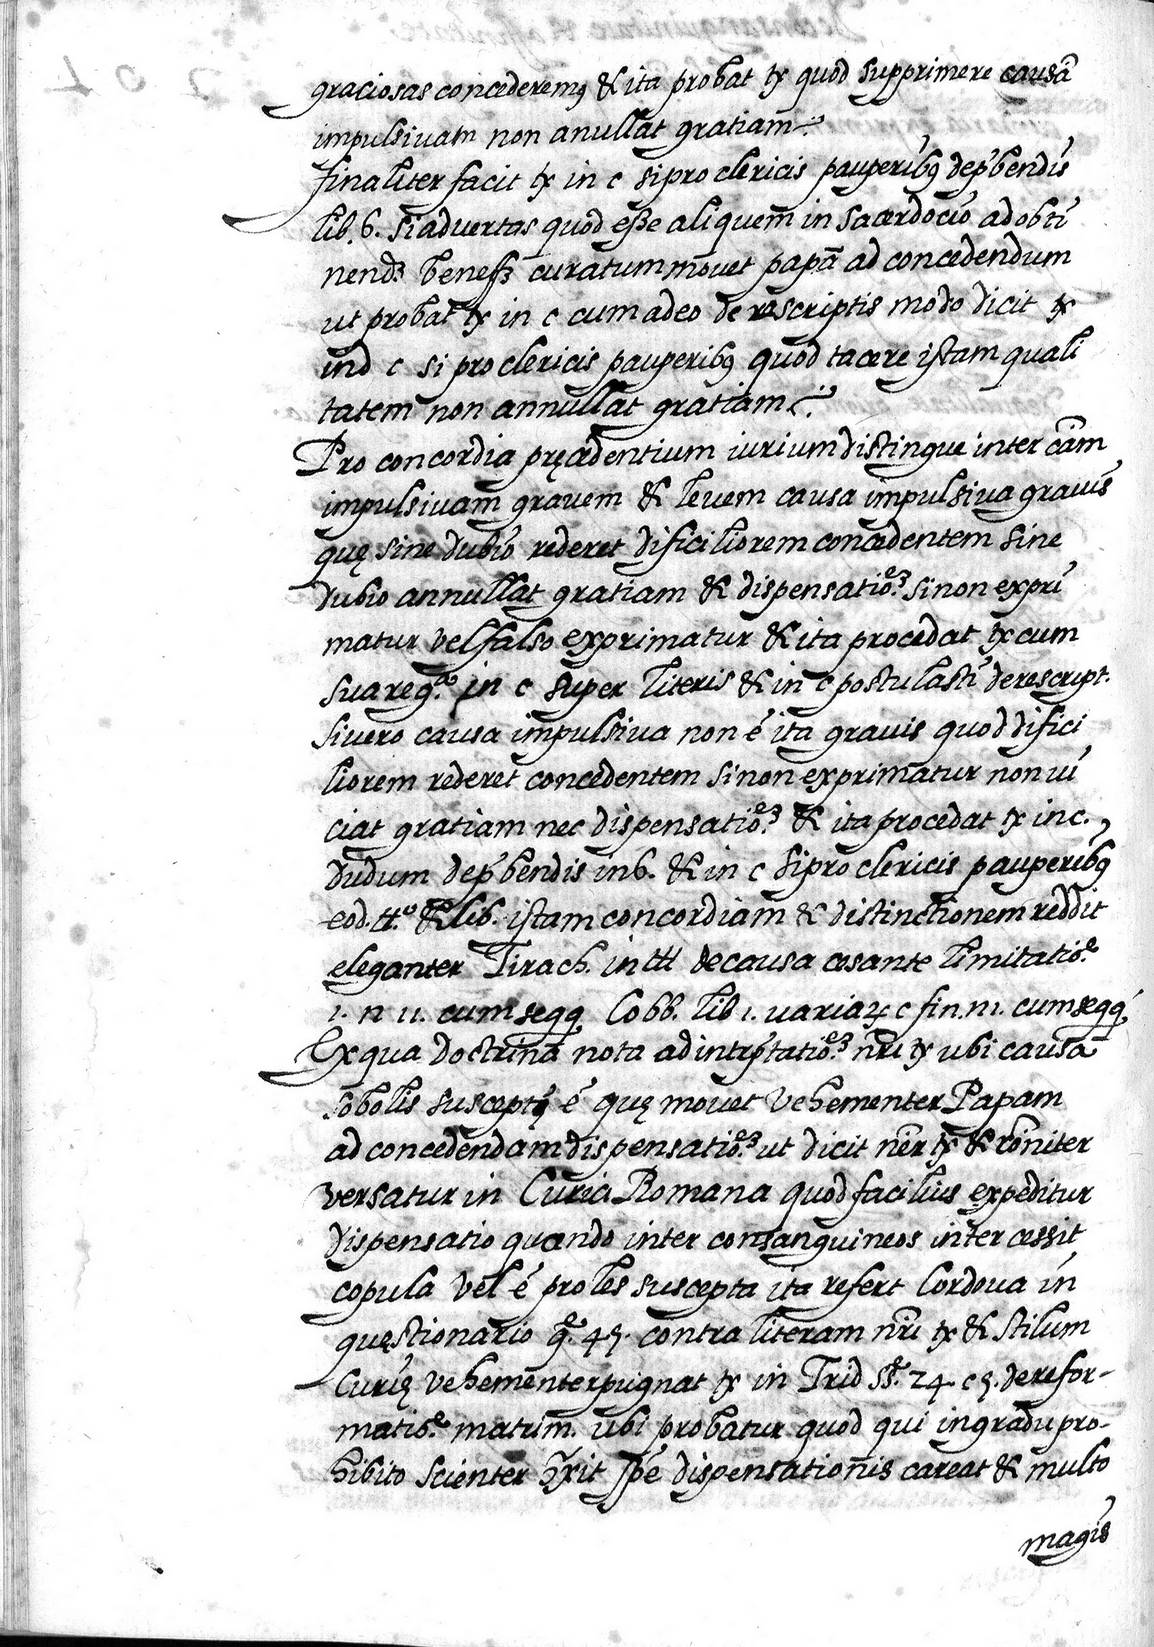 graciosas concederemꝯ & ita probat tx quod supprimere causã
impulsiuam non anullat gratiam.
finaliter facit tx in c si pro clericis pauperibꝯ de p̄bendis
lib. 6. si aduertas quod esse aliquem in sacerdocio ad obti
nendꝫ benefꝫ curatum mouet papã ad concedendum
ut probat tx in c cum adeo de rescriptis modo dicit tx
in d c si pro clericis pauperibꝯ quod tacere istam quali
tatem non annullat gratiam.
Pro concordia pręcedentium iurium distingue inter cãm
impulsiuam grauem & leuem causa impulsiua grauis
quę sine dubio rederet dificiliorem concedentem sine
dubio annullat gratiam & dispensatioᵉꝫ. si non expri
matur vel falso exprimatur & ita procedat tx cum
sua reg.ᵃ in c super literis & in c postulasti de rescript.
Si uero causa impulsiua non é ita grauis quod difici
liorem rederet concedentem si non exprimatur non ui
ciat gratiam nec dispensatioᵉꝫ. & ita procedat tx in c.
dudum de p̄bendis in 6. & in c si pro clericis pauperibꝯ
eod. tt.º & lib. istam concordiam & distinctionem reddit
eleganter Tirach. in ttt de causa cesante limitatioᵉ.
1. n 11. cum seqq Cobb. lib 1. uariaꝝ c fin. n1. cum seqq
Ex qua doctrina nota ad intrp̄tatioᵉꝫ. nr̃i tx ubi causa
sobolis susceptę é quę mouet vehementer Papam
ad concedendam dispensatioᵉꝫ. ut dicit nr̃ tx & cõniter
versatur in Curia Romana quod facilius expeditur
dispensatio quando inter consanguineos inter cessit
copula vel é proles suscepta ita refert Cordoua in
quęstionario q̃. 45. contra literam nr̃i tx & stilum
Curię vehementer pugnat tx in Trid ss̃. 24. c 5. de refor-
matioᵉ. matrim. ubi probatur quod qui in gradu pro-
hibito scienter ↄ̃xit spé dispensationis careat & multo
magis